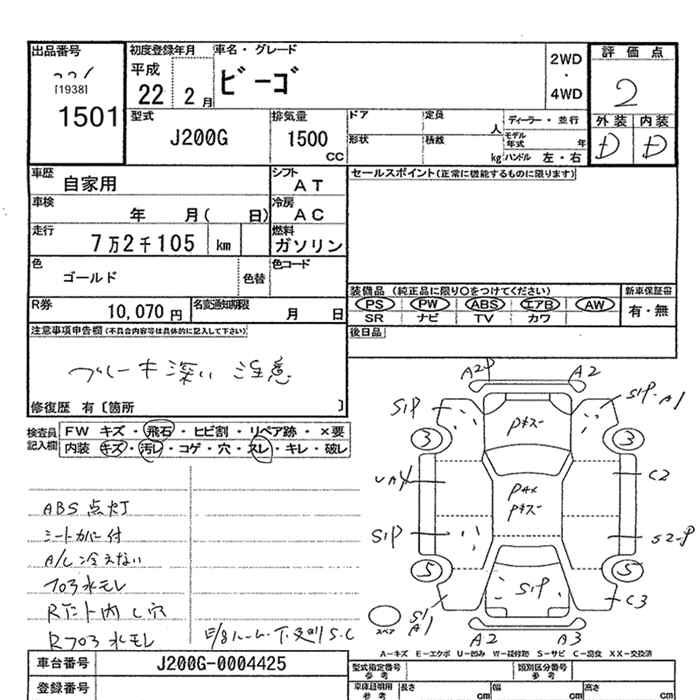 出品番号 初度登録年月 車名・グレード 2WD・4WD 評価点
[1938] 平成 22 2月 ビーゴ 2
1501 外装 内装
型式 J200G 排気量 1500 CC ドア 定員 人 ディーラー・並行 D D
形状 積載 kg モデル年式 年 ハンドル 左・右
車歴 自家用 シフト AT セールスポイント(正常に機能するものに限ります)
車検 年 月( 日) 冷房 AC
走行 7万2千105 km 燃料 ガソリン
色 ゴールド 色替 色コード
装備品 (純正品に限り○をつけてください) 新車保証書
R券 10,070円 名変通知期限 月 日 PS PW ABS エアB AW 有・無
SR ナビ TV カワ
注意事項申告欄(不具合内容等は具体的に記入して下さい) 後日品
ブレーキ深い 注意
修復歴 有〔箇所 〕
検査員記入欄 FW キズ・飛石・ヒビ割・リペア跡・×要
内装 キズ・汚レ・コゲ・穴・スレ・キレ・破レ
ABS点灯
シートカバー付
A/C冷えない
R
A2P A2
S1P S1P A1
Pキズ
3 3
C2
Pキズ
S1P S2P
5 5
S1P C3
S1 A1
スペア
A2 A3
A-キズ E-エクボ U-凹み W-補修跡 S-サビ C-腐食 XX-交換済
車台番号 J200G-0004425 型式指定番号 参考 類別区分番号 参考
登録番号 車庫証明用 参考 長さ cm 幅 cm 高さ cm